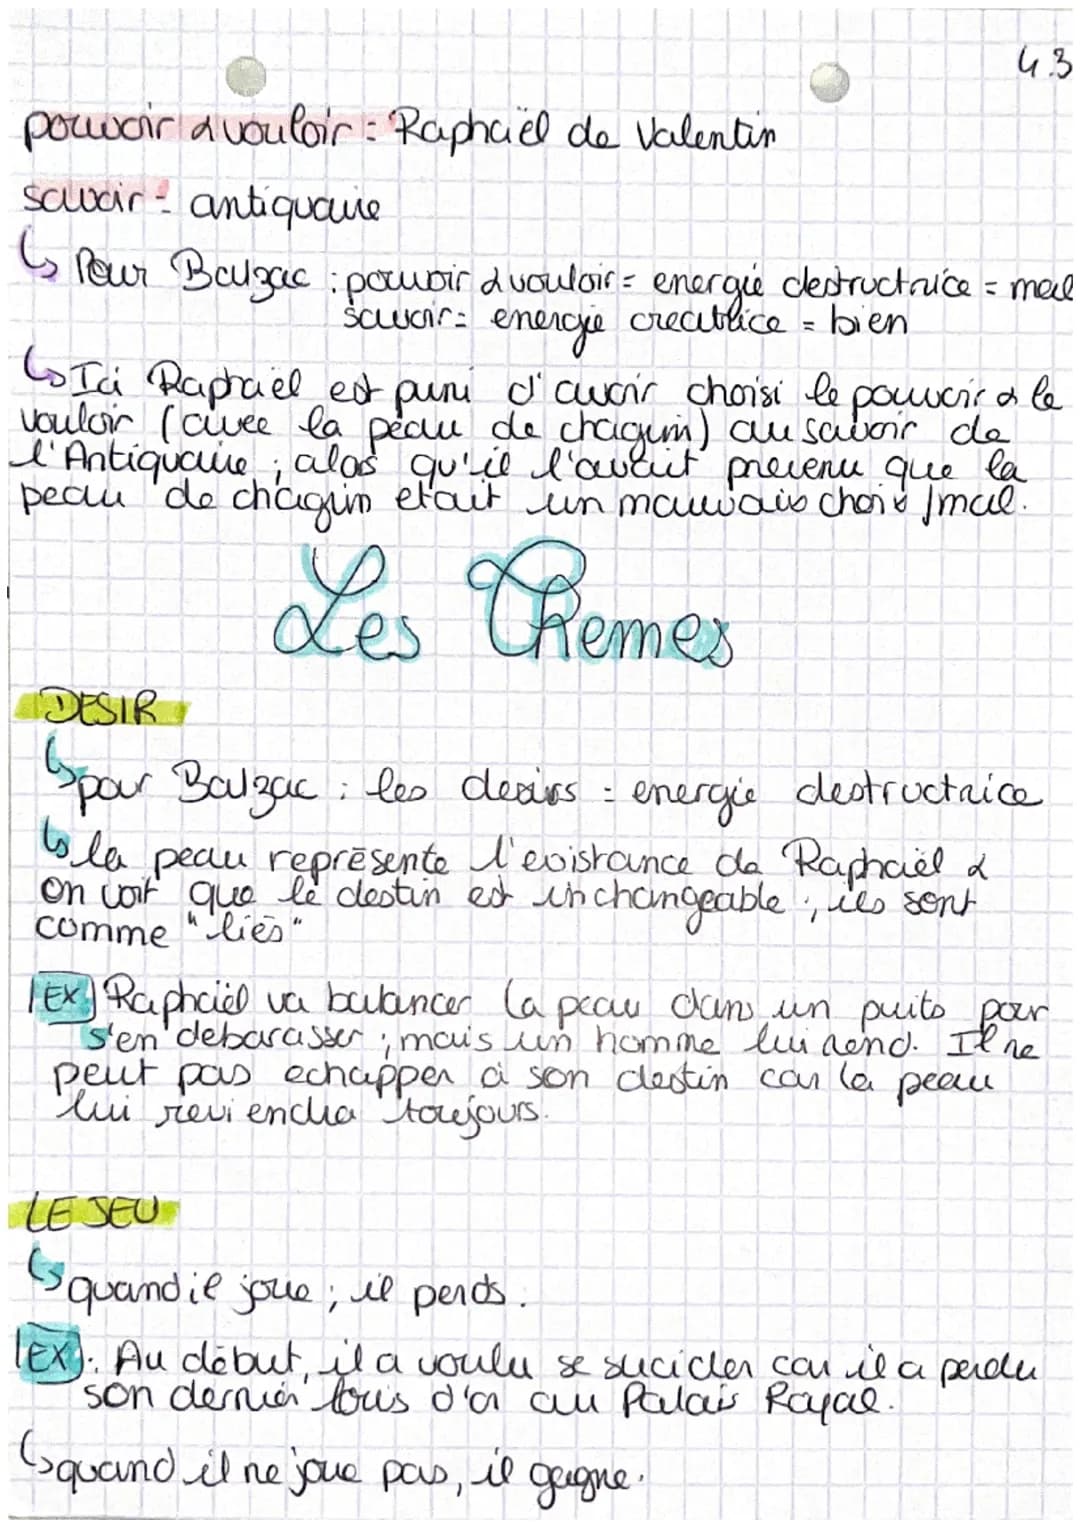 4.3
pouvoir & vouloir = Raphaël de Valentin
savoir = antiquaire
↳ Pour Balzac : pouvoir & vouloir = energie destructrice = mal
savoir = energie creatrice = bien
↳ Ici Raphaël est puni d'avoir choisi le pouvoir & le
vouloir (avec la peau de chagrin) au savoir de
l'Antiquaire ; alors qu'il l'avait prevenu que la
peau de chagrin etait un mauvais choix / mal.
Les Themes
DESIR
↳ pour Balzac : les desirs = energie destructrice
↳ la peau représente l'existance de Raphaël &
on voit que le destin est inchangeable ; ils sont
comme "liés"
EX Raphaël va balancer la peau dans un puits pour
s'en debarasser ; mais un homme lui rend. Il ne
peut pas echapper à son destin car la peau
lui reviendra toujours.
LE JEU
↳ quand il joue ; il perds.
EX : Au début, il a voulu se suicider car il a perdu
son dernier louis d'or au Palais Royal.
↳ quand il ne joue pas, il gagne.